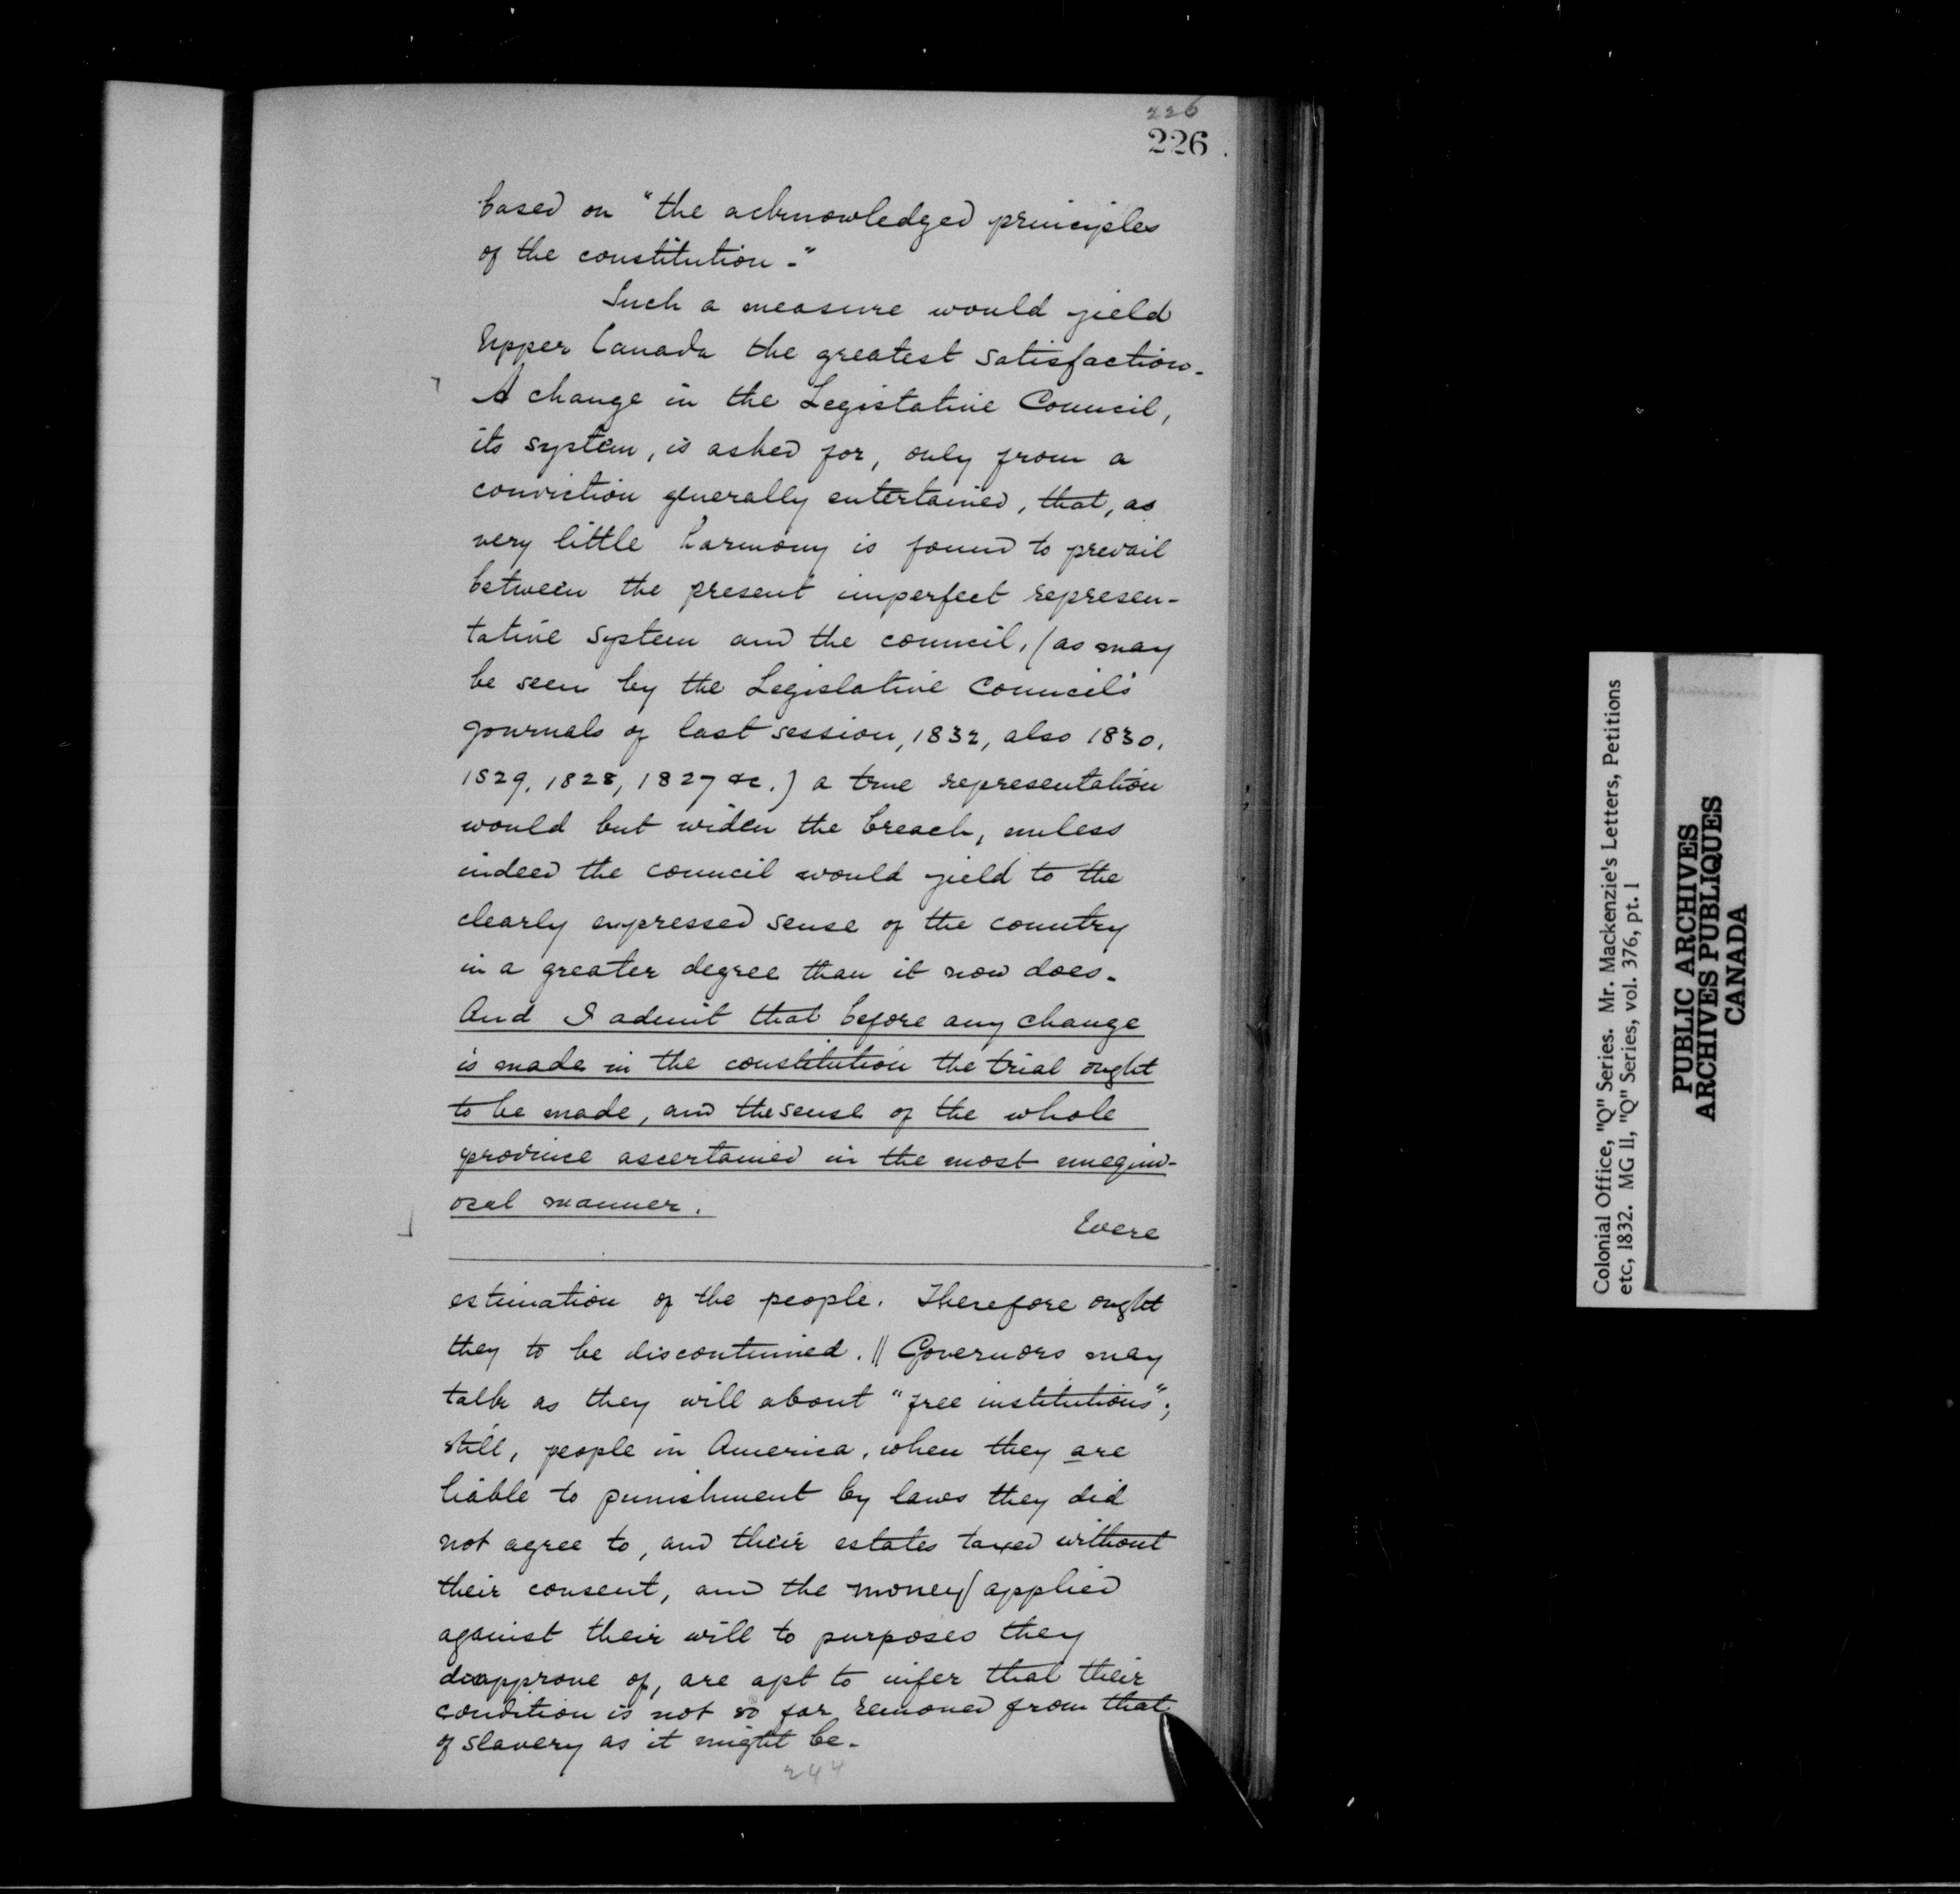 226
226.
based on "the acknowledged principles
of the constitution."
Such a measure would yield
Upper Canada the greatest satisfaction.
A change in the Legislative Council,
its system, is asked for, only from a
conviction generally entertained, that, as
very little harmony is found to prevail
between the present imperfect represen-
tative system and the council, (as may
be seen by the Legislative Council's
journals of last session, 1832, also 1830,
1829, 1828, 1827 &c.) a true representation
would but widen the breach, unless
indeed the council would yield to the
clearly expressed sense of the country
in a greater degree than it now does.
And I admit that before any change
is made in the constitution the trial ought
to be made, and the sense of the whole
province ascertained in the most unequiv-
ocal manner.
Were
estimation of the people. Therefore ought
they to be discontinued. || Governors may
talk as they will about "free institutions";
still, people in America, when they are
liable to punishment by laws they did
not agree to, and their estates taxed without
their consent, and the money applied
against their will to purposes they
disapprove of, are apt to infer that their
condition is not so far removed from that
of slavery as it might be.
244
Colonial Office, "Q" Series. Mr. Mackenzie's Letters, Petitions
etc, 1832. MG 11, "Q" Series, vol. 376, pt. 1
PUBLIC ARCHIVES
ARCHIVES PUBLIQUES
CANADA